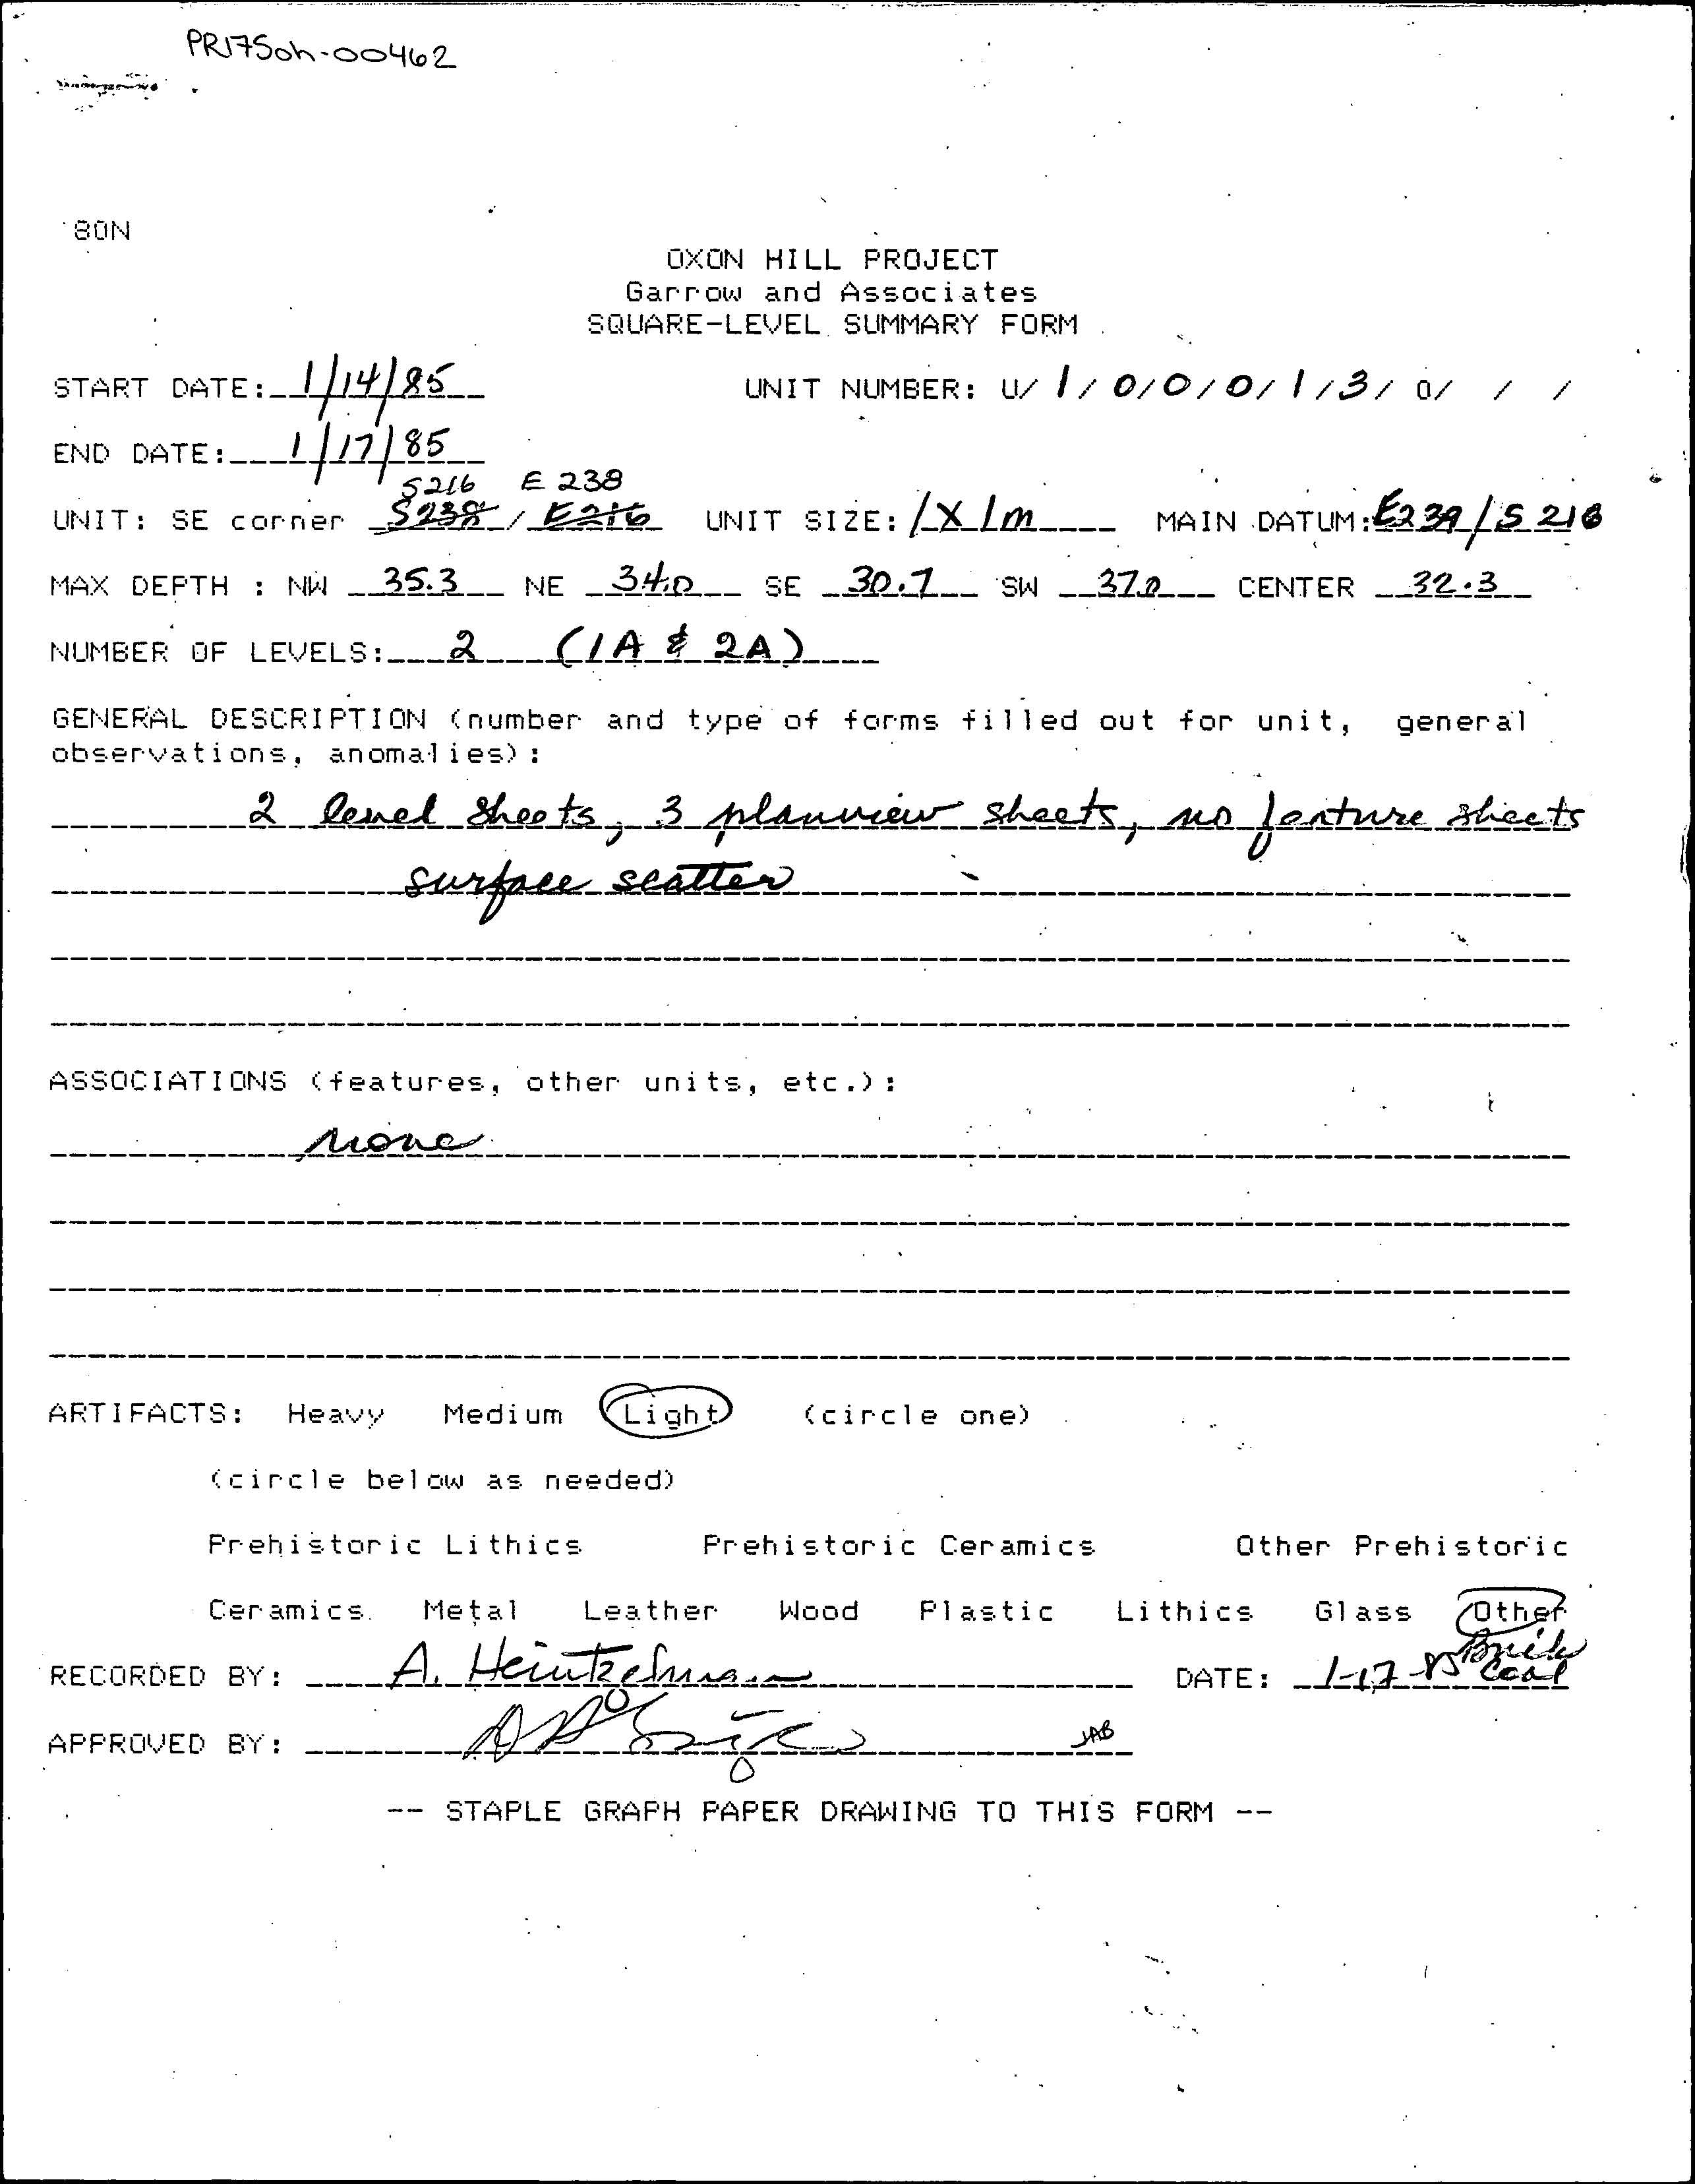 PR175oh-00462
80N
OXON HILL PROJECT
Garrow and Associates
SQUARE-LEVEL SUMMARY FORM
START DATE: 1/14/85 UNIT NUMBER: U/ 1 / 0/0/0/1/3/ 0/ / /
END DATE: 1/17/85
S216 E 238
UNIT: SE corner S238 / E216 UNIT SIZE: 1 X 1 m MAIN DATUM: E239/S 216
MAX DEPTH : NW 35.3 NE 34.0 SE 30.7 SW 37.0 CENTER 32.3
NUMBER OF LEVELS: 2 (1A & 2A)
GENERAL DESCRIPTION (number and type of forms filled out for unit, general
observations, anomalies):
2 level sheets, 3 planview sheets, no feature sheets
surface scatter
ASSOCIATIONS (features, other units, etc.):
none
ARTIFACTS: Heavy Medium Light (circle one)
(circle below as needed)
Prehistoric Lithics Prehistoric Ceramics Other Prehistoric
Ceramics Metal Leather Wood Plastic Lithics Glass Other
Brick
RECORDED BY: A. Heintzelman DATE: 1-17-85 Coal
APPROVED BY: JAB
-- STAPLE GRAPH PAPER DRAWING TO THIS FORM --